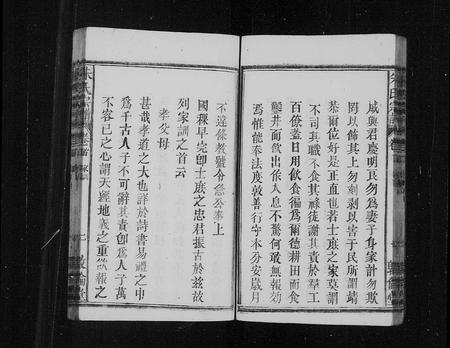 咸興君慶明良勿為妻子身家計勿欺
罔以飾其上勿剝以皆于民所謂靖
恭爾位好是正直也若士庶之家莫謂
不司其職不食其祿徒謝其責於羣工
百僚蓋日用飲食徧為爾德耕田而食
鑿井而飲出作入息不驚何敢無報効
焉惟能奉法度敦善行守本分安歲月
不違條教蠶令急公奉上
國稞早完卽士庶之忠君振古於茲故
列家訓之首云
孝父母
甚哉孝道之大也詳於詩書易禮之中
為千古人子不可辭其責卽為人子萬
不容已之心謂天經地義之重欲報之
朱氏宗譜
卷首